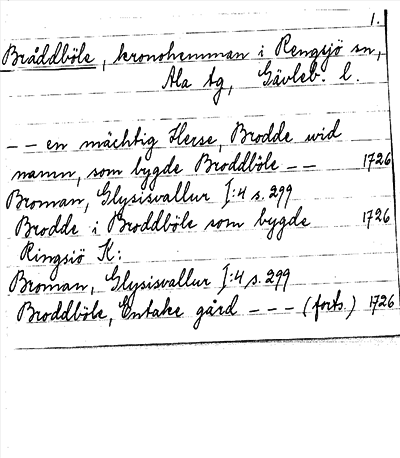 1.
Bråddböle, kronohemman i Rengsjö sn,
Ala tg, Gävleb. l.
-- en mächtig Herse, Brodde wid
namn, som bygde Broddböle -- 1726
Broman, Glysisvallur I:4 s. 299
Brodde i Broddböle som bygde 1726
Ringsiö K:
Broman, Glysisvallur I:4 s. 299
Broddböle, Entake gård --- (forts.) 1726